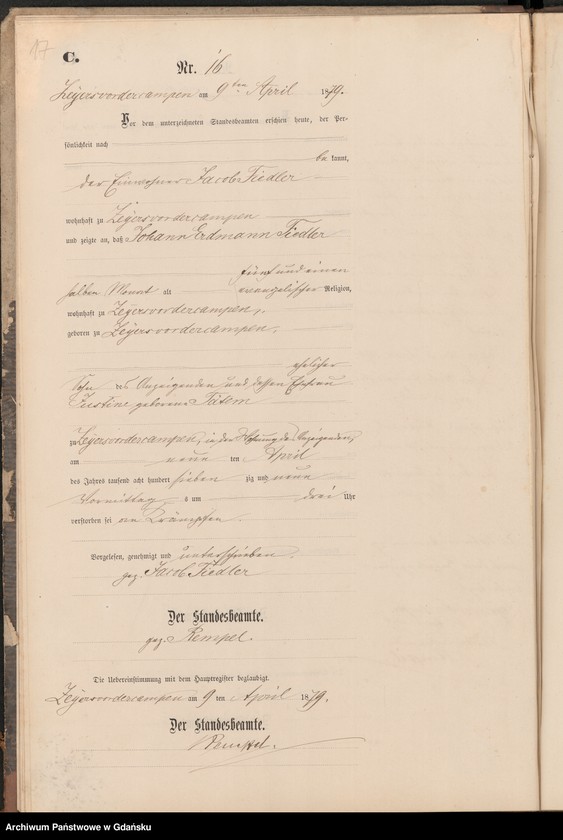 17
C.
Nr. 16
Zeyersvordercampen am 9ten April 1879.
Vor dem unterzeichneten Standesbeamten erschien heute, der Per-
sönlichkeit nach
be kannt,
der Einwohner Jacob Fiedler
wohnhaft zu Zeyersvordercampen
und zeigte an, daß Johann Erdmann Fiedler
fünf und einen
halben Monat alt evangelischer Religion,
wohnhaft zu Zeyersvordercampen,
geboren zu Zeyersvordercampen,
ehelicher
Sohn des Anzeigenden und dessen Ehefrau
Justine geborene
zu Zeyersvordercampen, in der Wohnung des Anzeigenden,
am neun ten April
des Jahres tausend acht hundert sieben zig und neun
Vormittag s um drei Uhr
verstorben sei an Krämpfen.
Vorgelesen, genehmigt und unterschrieben.
gez. Jacob Fiedler
Der Standesbeamte.
gez. Rempel.
Die Uebereinstimmung mit dem Hauptregister beglaubigt.
Zeyersvordercampen am 9 ten April 1879.
Der Standesbeamte.
Rempel.
Archiwum Państwowe w Gdańsku